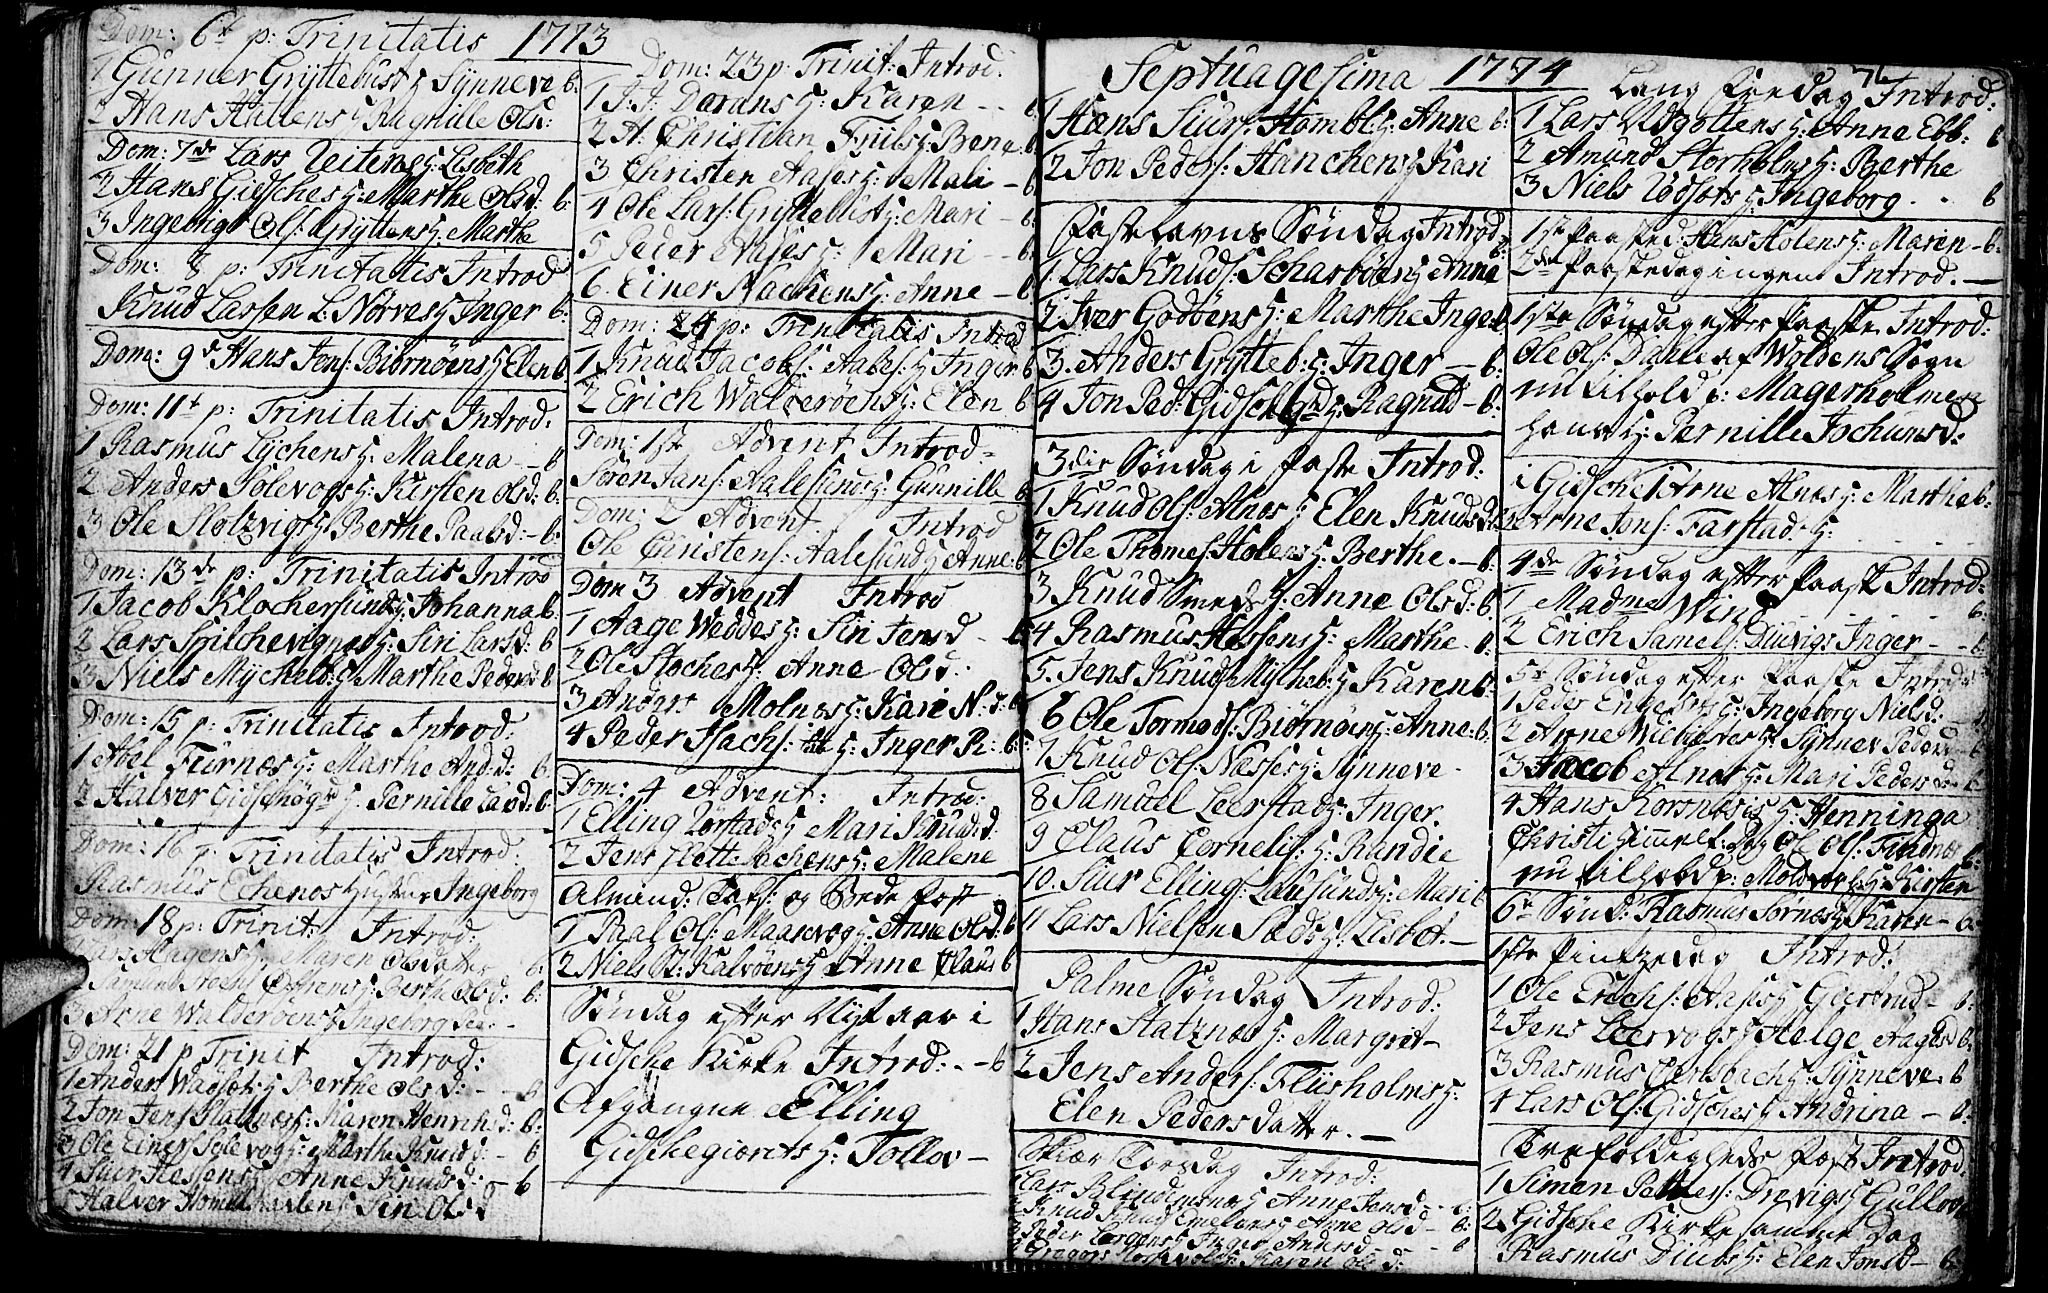 Dom: 6t p: Trinitatis 1773
1 Gunner Gryttebust H: Synneve 6:
2 Hans Hattens H: Ragnille Ols:
Dom: 7de Lars Leitenes H: Lisbeth
2 Hans Gidsches H: Marthe Olsd: 6:
3 Ingebrigt Ols: Gryttens H: Marthe
Dom: 8 p: Trinitatis Introd
Knud Larsen L: Nørves H: Inger 6:
Dom: 9d Hans Jons: Biørnøens H: Elen 6
Dom: 11t p: Trinitatis Introd:
1 Rasmus Lychens H: Malena - 6
2 Anders Solevogs H: Kirsten Olsd: 6:
3 Ole Slotzvigs H: Berthe Paalsd: - 6:
Dom: 13de p: Trinitatis Introd
1 Jacob Klochersunds H: Johanna 6:
2 Lars Spilchevignes H: Siri Larsd: 6
3 Niels Myckelb: H: Marthe Pedersd 6
Dom: 15 p: Trinitatis Introd:
1 Abel Furnes H: Marthe And:d: 6:
2 Halver Gidschøgd H: Pernille Lasd: 6:
Dom: 16 p: Trinitatis Introd:
Rasmus Echenos Hustrue Ingeborg
Dom: 18 p: Trinit: Introd:
Lars Hagens H: Maren Olsdatter 6:
2 H: Berthe Olsd: 6:
3 Arne Walderøens H: Ingeborg Ped: -
Dom: 21 p Trinit Introd:
1 Anders H: Berthe Olsd: - - 6
2 Jon Jens Statnes H: Karen Henrichd: 6:
3 Ole Einers Solevog H: Marthe Knudsd: - 6
4 Siur Hessens H: Anne Knudsd: - 6
5 Halver H: Siri Olsd
Dom: 23 p: Trinit: Introd:
1 J: J: Dorans H: Karen - - 6
2 H: Christian Friis H: Bena 6
3 Christen Aases H: Mali - 6
4 Ole Lars: Gryttebust H: Mari - 6:
5 Peder Aases H: Mari - - 6:
6. Einer Nachens H: Anne - 6
Dom: 24 p: Trinitatis Introd
1 Knud Jacobs: Aabs: H: Inger: 6
2 Erich Walderøens H: Elen 6
Dom: 1ste Advent Introd =
Søren Jans: Aalesunds H: Gunnille 6
Dom: 2 Advent Introd
Ole Christens: Aalesunds H: Anne: 6
Dom 3 Advent Introd
1 Aage Weddes H: Siri Jensd - 6
2 Ole Stoches H: Anne Olsd:
3 Anders Molnes H: Kari N:d: 6
4 Peder Isachs: H: Inger Pe: 6:
Dom: 4 Advent: Introd:
1 Elling Rørstads H: Mari Knudsd:
2 Jens Slettebachens H: Malene
Almind: Taks: og Bede Fest
1 Paal Ols: Maasevog H: Anne Olsd: 6
2 Niels N: Kalvøens H: Anne Claus 6
Søndag efter Nyt aar i
Gidsche Kirke Introd: - 6
Afgangne Elling
Gidschegiærets H: Tollov -
Septuagesima 1774
1 Hans Siurs Hombls H: Anne 6:
2 Jon Peders: Hanchens H: Kari
Fastelavns Søndag Introd:
1 Lars Knuds: Scharbøens H: Anne 6:
2 Iver Godøens H: Marthe Ingeb
3. Anders Grytteb: H: Inger - 6:
4 Jon Ped: Gidschegd H: Ragnild - 6:
3die Søndag i Faste Introd:
1 Knud Ols: Alnes H: Elen Knudsd
2 Ole Thomes: Holens H: Berthe. - 6:
3 Knud Smeds H: Anne Olsd: 6
4 Rasmus Hessens H: Marthe - 6:
5. Jens Knuds Mycheb: H: Karen 6:
6 Ole Tormods Biørnøens H: Anne: 6
7 Knud Ols: Næsses H: Synneve -
8 Samuel Leerstads H: Inger.
9 Claus Cornelis: H: Randie
10. Siur Ellings: Lausunds H: Mari 6
11 Lars Nielsen Sæds H: Lisbet. -
Palme Søndag Introd:
1 Hans Statznes H: Margret -
2 Jens Anders: Fliisholms H:
Elen Pedersdatter. -
Skiær Torsdag Introd:
1 Lars Blindemsnes H: Anne Jensd - 6:
2 Knud Knuds Emblems Anne Olsd - 6:
3 Peder H: Inger Andersd - - 6
4 Gregors H: Karen Olsd:
76
Lang Fredag Introd:
1 Lars Udgottens H: Anne Ebb: 6
2 Amund Storholms H: Berthe
3 Niels Rødsets H: Ingeborg. . 6
1ste Paasked: Hans Holens H: Maren - 6:
2den Paaskedag ingen Introd. -
1ste Søndag efter Paaske Introd:
Ole Ols: Dahle af Woldens Sogn
nu tilhold p: Magerholmen
hans H: Pernille Jochumsd:
i Gidsche 1 Arne Alnes H: Marthe 6:
2 Arne Jons: Farstads H: . . .
4de Søndag efter Paaske Introd:
1 Madme Wind - - 6:
2 Erich Samels: Diuvigs Inger - - 6
5te Søndag efter Paaske Introd:
1 Peder Engesnes H: Ingeborg Nielsd: - 6
2 Arne Wiebustes H: Synnev Pedersd - 6
3 Jacob Alnes H: Mari Pedersd - 6
4 Hans Korsnæsis H: Henninga
Christi Himmelf: Dag Ole Ols: Findnes 6:
nu tilhold p: Moldvor H: Kirsten
6te Sønd: Rasmus Sørnes H: Karen - 6:
1ste Pintzedag Introd:
1 Ole Erichs: Aases H: Giertrud - 6:
2 Jens Leervogs H: Helge Aagesd 6:
3 Rasmus H: Synneve. 6
4 Lars Ols: Gidsches H: Andrina - 6:
Trefoldigheds Fæst Introd.
1 Simen Petters: Drevigs H: Gullov
2 Gidsche Kirke samme Dag
Rasmus Diubs H: Elen Jonsd - 6: